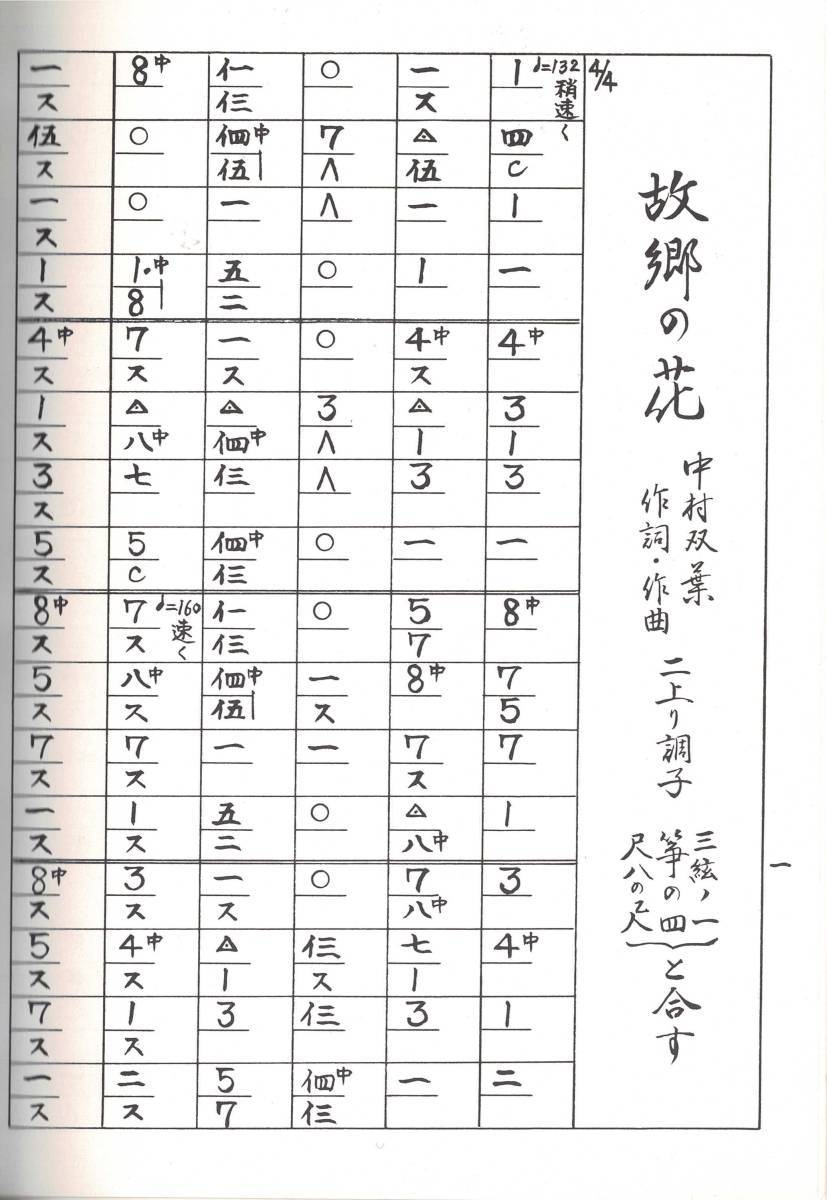 故郷の花
中村双葉
作詞・作曲
二上り調子
三絃ノ一
箏の四
尺八の乙尺
と合す
一
4/4
♩=132 稍速く
1 四 C 1 一 4中 3 1 3 一 8中 7 5 7 1 3 4中 1 二
一 ス △ 伍 一 1 4中 ス △ 1 3 一 5 7 8中 7 ス △ 八中 7 八中 七 1 3 一
○ 7 ∧ ∧ ○ ○ 3 ∧ ∧ ○ ○ 一 ス 一 ○ ○ 仨 ス 仨 伵中 仨
亻一 仨 伵中 伍 一 五 二 一 ス △ 伵中 仨 伵中 仨 亻一 仨 伵中 伍 一 五 二 一 ス △ 1 3 5 7
8中 ○ ○ 1・中 8 7 ス △ 八中 七 5 C 7 ス 八中 ス 7 ス 1 ス 3 ス 4中 ス 1 ス 二 ス
♩=160 速く
一 ス 伍 ス 一 ス 1 ス 4中 ス 1 ス 3 ス 5 ス 8中 ス 5 ス 7 ス 一 ス 8中 ス 5 ス 7 ス 一 ス